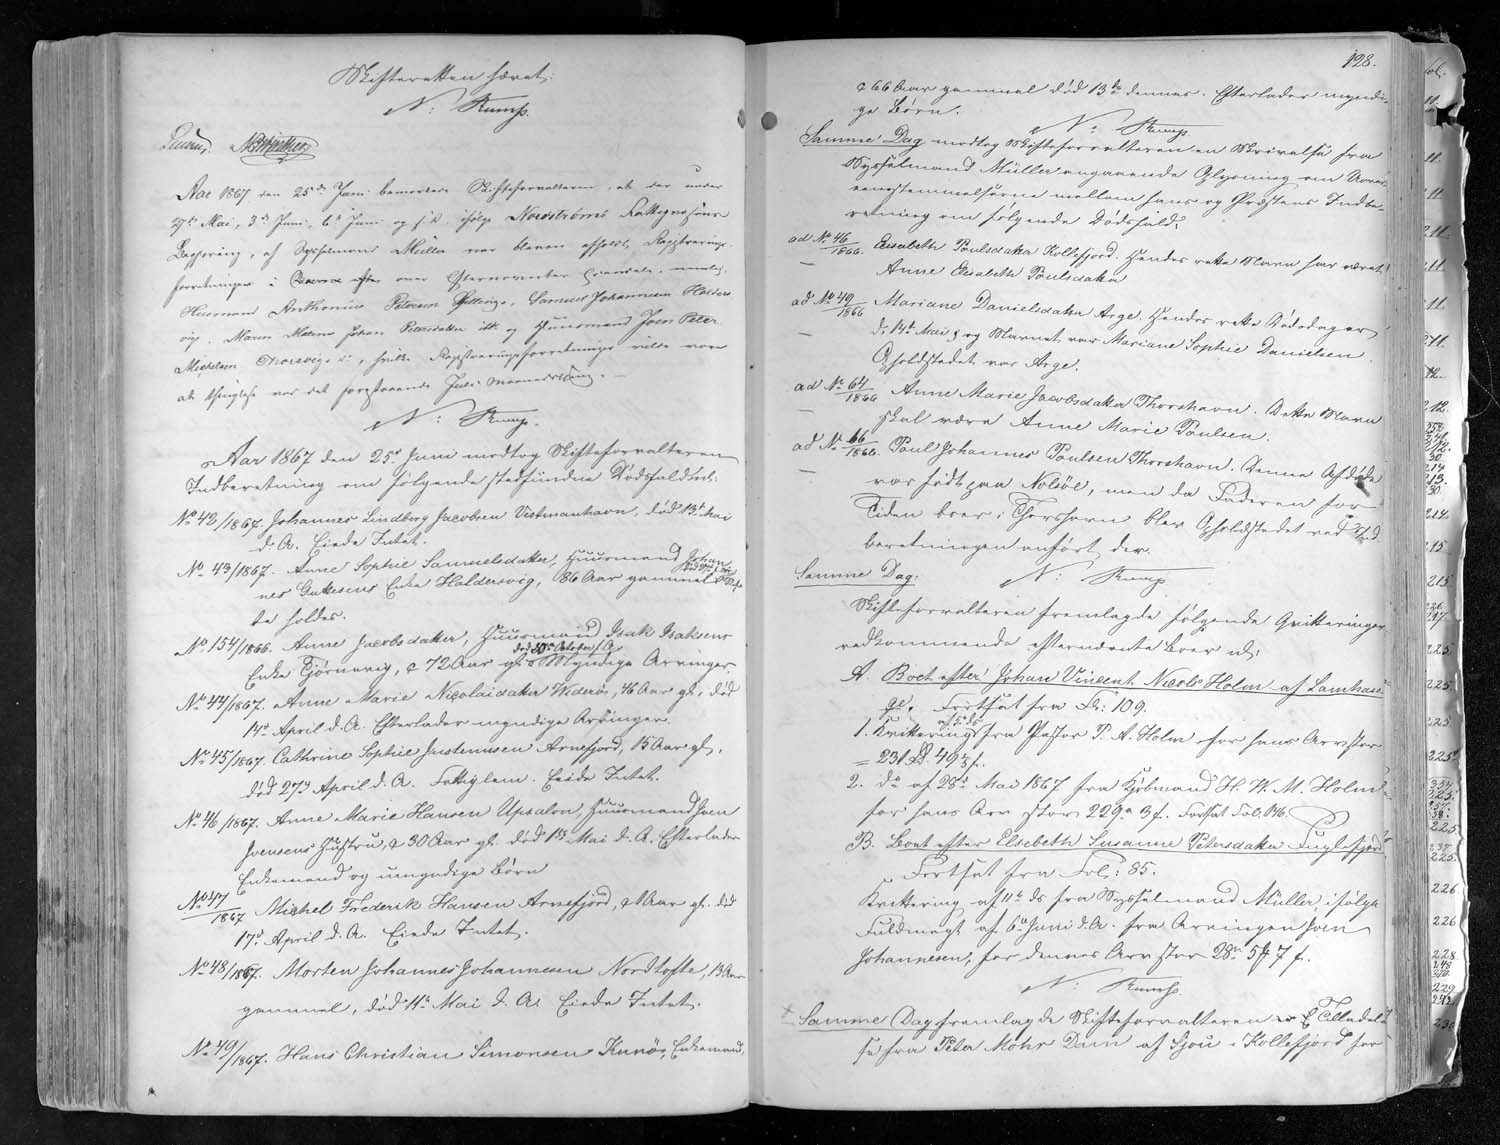 Skifteretten hævet.
N: Rump.
Aar 1867 den 25de Juni bemærkede Skifteforvalteren, at der under
27de Mai, 3de Juni, 6te Juni og s. D. ifølge Nordströms Rettegnsføreres
af Sysselmand Müller var bleven afholdt Registrerings-
forretninger i efter
Huusmand Anthonius Petersen Gjetterig, Samuel Johannesen Halders
vig, Maren Malene Johan og Huusmand Joen Peter
Michelsen Thorsvig, hvilke Registreringsforretninger ville være
at
N: Rump.
Aar 1867 den 25de Juni modtog Skifteforvalteren
Indberetning om følgende stedfundne Dødsfald:
No 42/1867. Johannes Lindberg Jacobsen Vestmanhavn, død 13de Mai
d. A. Eiede Intet.
No 43/1867. Anne Sophie Samuelsdatter, Huusmand Johan
nes Guttesens Enke Haldersvig, 86 Aar gammel
te holdes.
No 154/1866. Anne Jacobsdatter, Huusmand Isak Isaksens
død 20de October f. A.
Enke Tjørnevig, c 72 Aar gl. Myndige Arvinger.
No 44/1867. Anne Marie Nicolaidatter Viderø, 46 Aar gl., død
14de April d. A. Efterlader myndige Arvinger.
No 45/1867. Cathrine Sophie Justennusen Arnefjord, 15 Aar gl.
død 27de April d. A. Fattiglem. Eiede Intet.
No 46/1867. Anne Marie Hansen Upsalon, Huusmand Joen
Joensens Hustru, c 30 Aar gl. død 1ste Mai d. A. Efterlader
Enkemand og umyndige Børn
No 47/1867 Michel Frederik Hansen Arnefjord, Aar gl. død
17de April d. A. Eiede Intet.
No 48/1867. Morten Johannes Johannesen Nordtofte, 13 Aar
gammel, død 11te Mai d. A. Eiede Intet.
No 49/1867. Hans Christian Simonsen Kunø, Enkemand,
128.
c 66 Aar gammel død 13de dennes. Efterlader myndi-
ge Børn.
N: Rump
Samme Dag modtog Skifteforvalteren en Skrivelse fra
Sysselmand Müller angaaende Oplysning om Uover-
eensstemmelserne mellem hans og Præstens Indbe-
retning om følgende Dødsfald:
ad No 46/1866. Elisabeth Poulsdatter Kollefjord. Hendes rette Navn har været
Anne Elisabeth Poulsdatter
ad No 49/1866 Mariane Danielsdatter Arge. Hendes rette Dødsdag er
d. 14de Mai og Navnet var Mariane Sophie Danielsen.
Opholdstedet var Arge.
ad No 64/1866 Anne Marie Jacobsdatter Thorshavn. Dette Navn
skal være Anne Marie Poulsen.
ad No 66/1866. Poul Johannes Poulsen Thorshavn. Denne Afdøde
var født paa Nolsøe, men da Faderen for
Tiden boer i Thorshavn blev Opholdstedet ved Ind
beretningen anført der.
N: Rump
Samme Dag.
Skifteforvalteren fremlagde følgende Qvitteringer
vedkommende efternævnte Boer nl:
A. Boet efter Johan Vincent Nicols Holm af Lamhau-
ge. Fortsat fra Fol: 109.
1. Kvittering af 5 ds fra Pastor P. A. Holm for hans Arv stor
= 231 Rd 49½ s.
2. Do af 28de Mai 1867 fra Kjøbmand H. W. M. Holm
for hans Arv stor 229 3 s. Fortsat Fol. 146.
B. Boet efter Elsebeth Susanne Petersdatter Fuglefjord
Fortsat fra Fol: 85.
Kvittering af 11te ds fra Sysselmand Müller ifølge
Fuldmagt af 6te Juni d. A. fra Arvingen Joen
Johannesen, for dennes Arv stor 28 5 7 s.
N: Rump.
Samme Dag fremlagde Skifteforvalteren en Tilladel-
se fra Peter Mohr Dam af Sjou i Kollefjord for